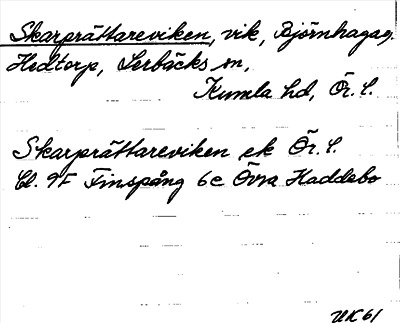 Skarprättareviken, vik, Björnhagag.
Hedtorp, Lerbäcks sn,
Kumla hd, Ör. l.
Skarprättareviken ek Ör. l.
Bl. 9F Finspång 6c Övra Haddebo
UK61